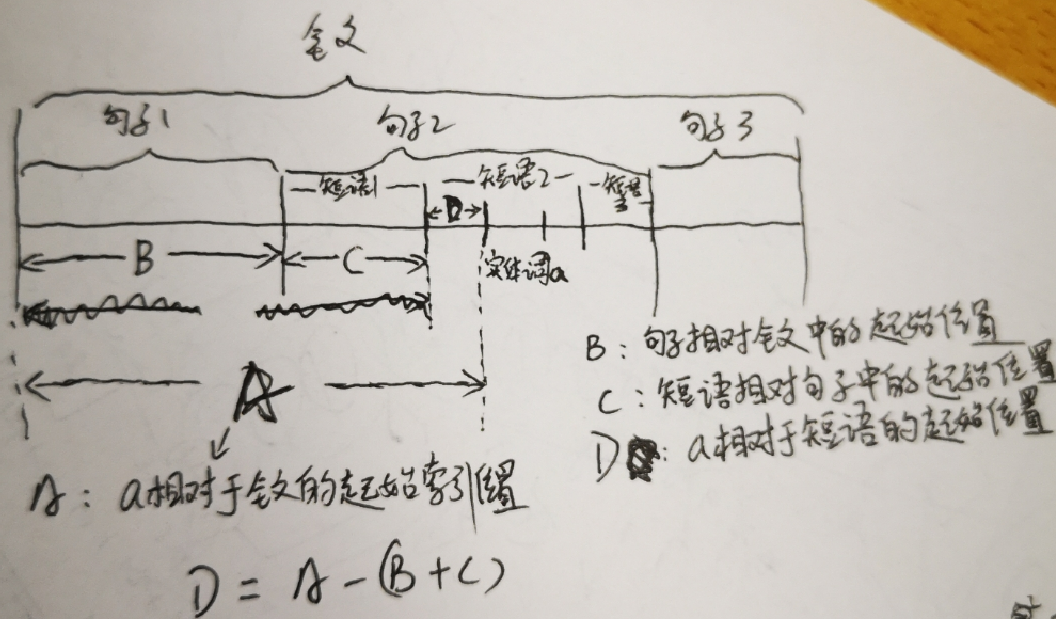 全文
句子1 句子2 句子3
短语1 短语2 短语3
D
B C 实体词a
A
B：句子相对全文中的起始位置
C：短语相对句子中的起始位置
D：a相对于短语的起始位置
A：a相对于全文的起始索引位置
D = A - (B + C)